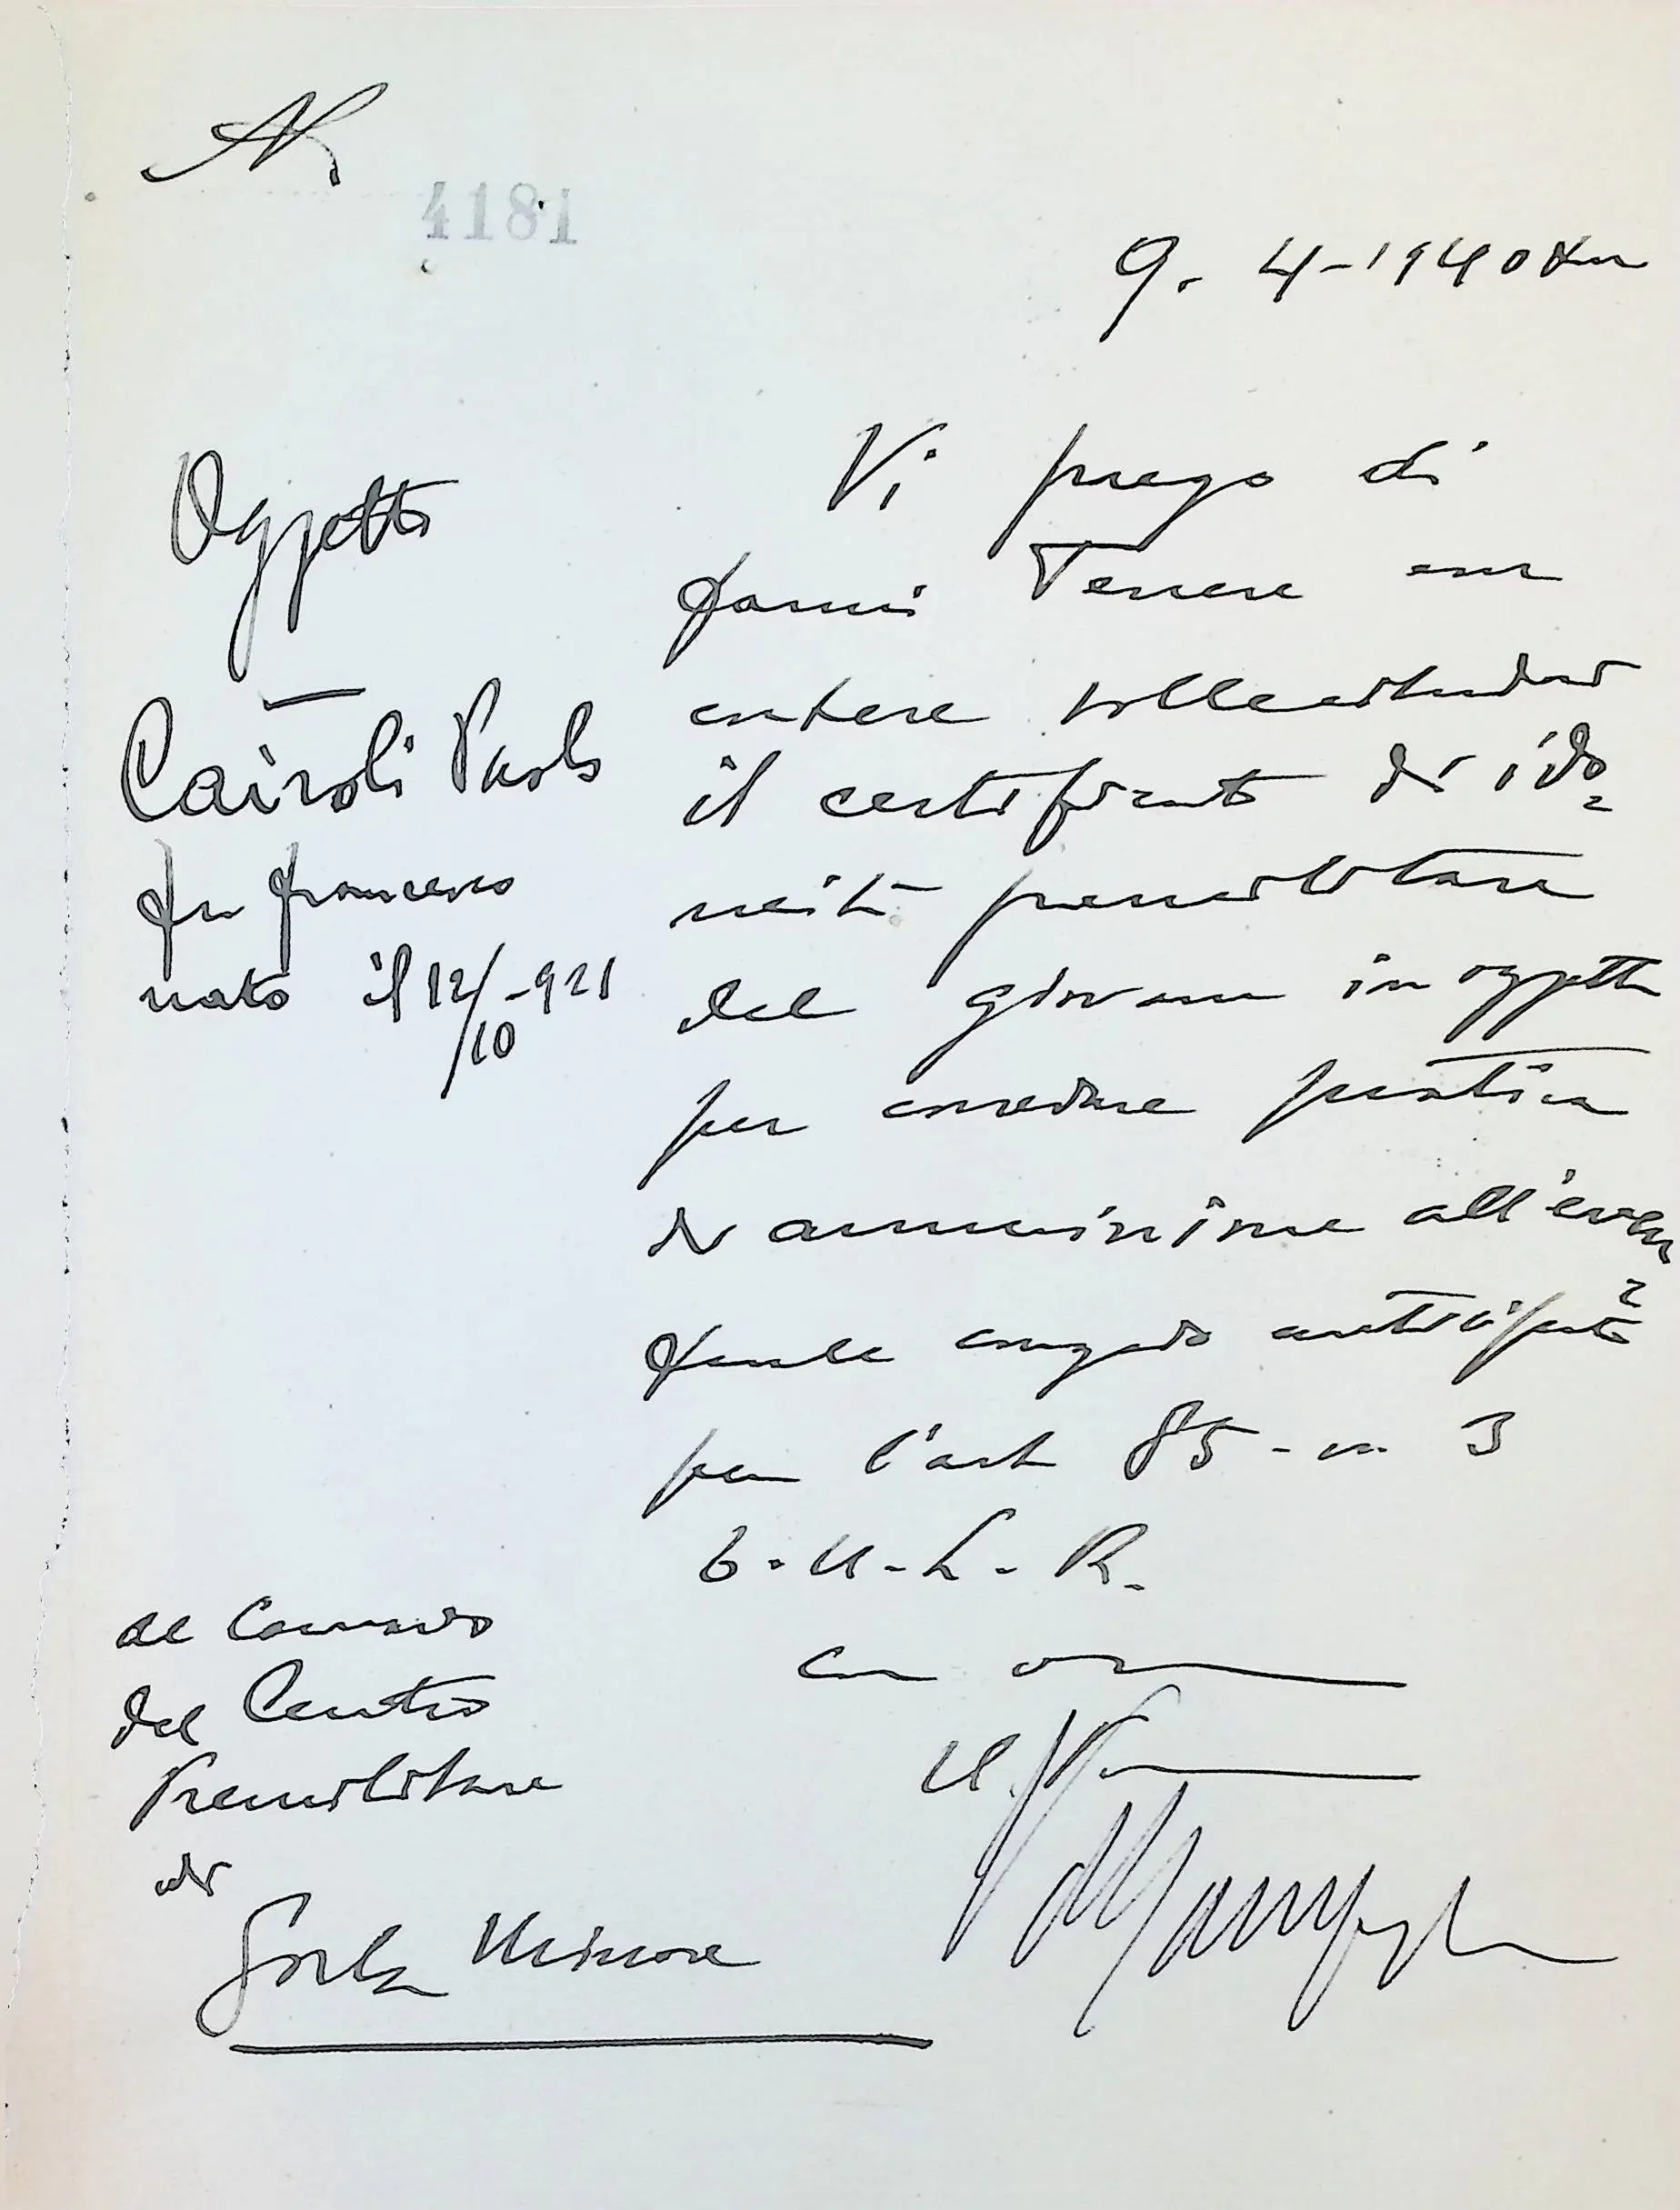 N
4181
9. 4-1940 XVIII
Oggetto
Cairoli Paolo
fu Francesco
nato il 12/10-921
Vi prego di
farmi tenere con
cortese sollecitudine
il certificato di ido
neità premilitare
del giovane in oggetto
per corredare pratica
di ammissione all'even
tuale congedo anticipato
per l'art 85 - n. 3
T.U.L.R.
con
Il
al Comando
del Centro
Premilitare
di
Gorla Minore